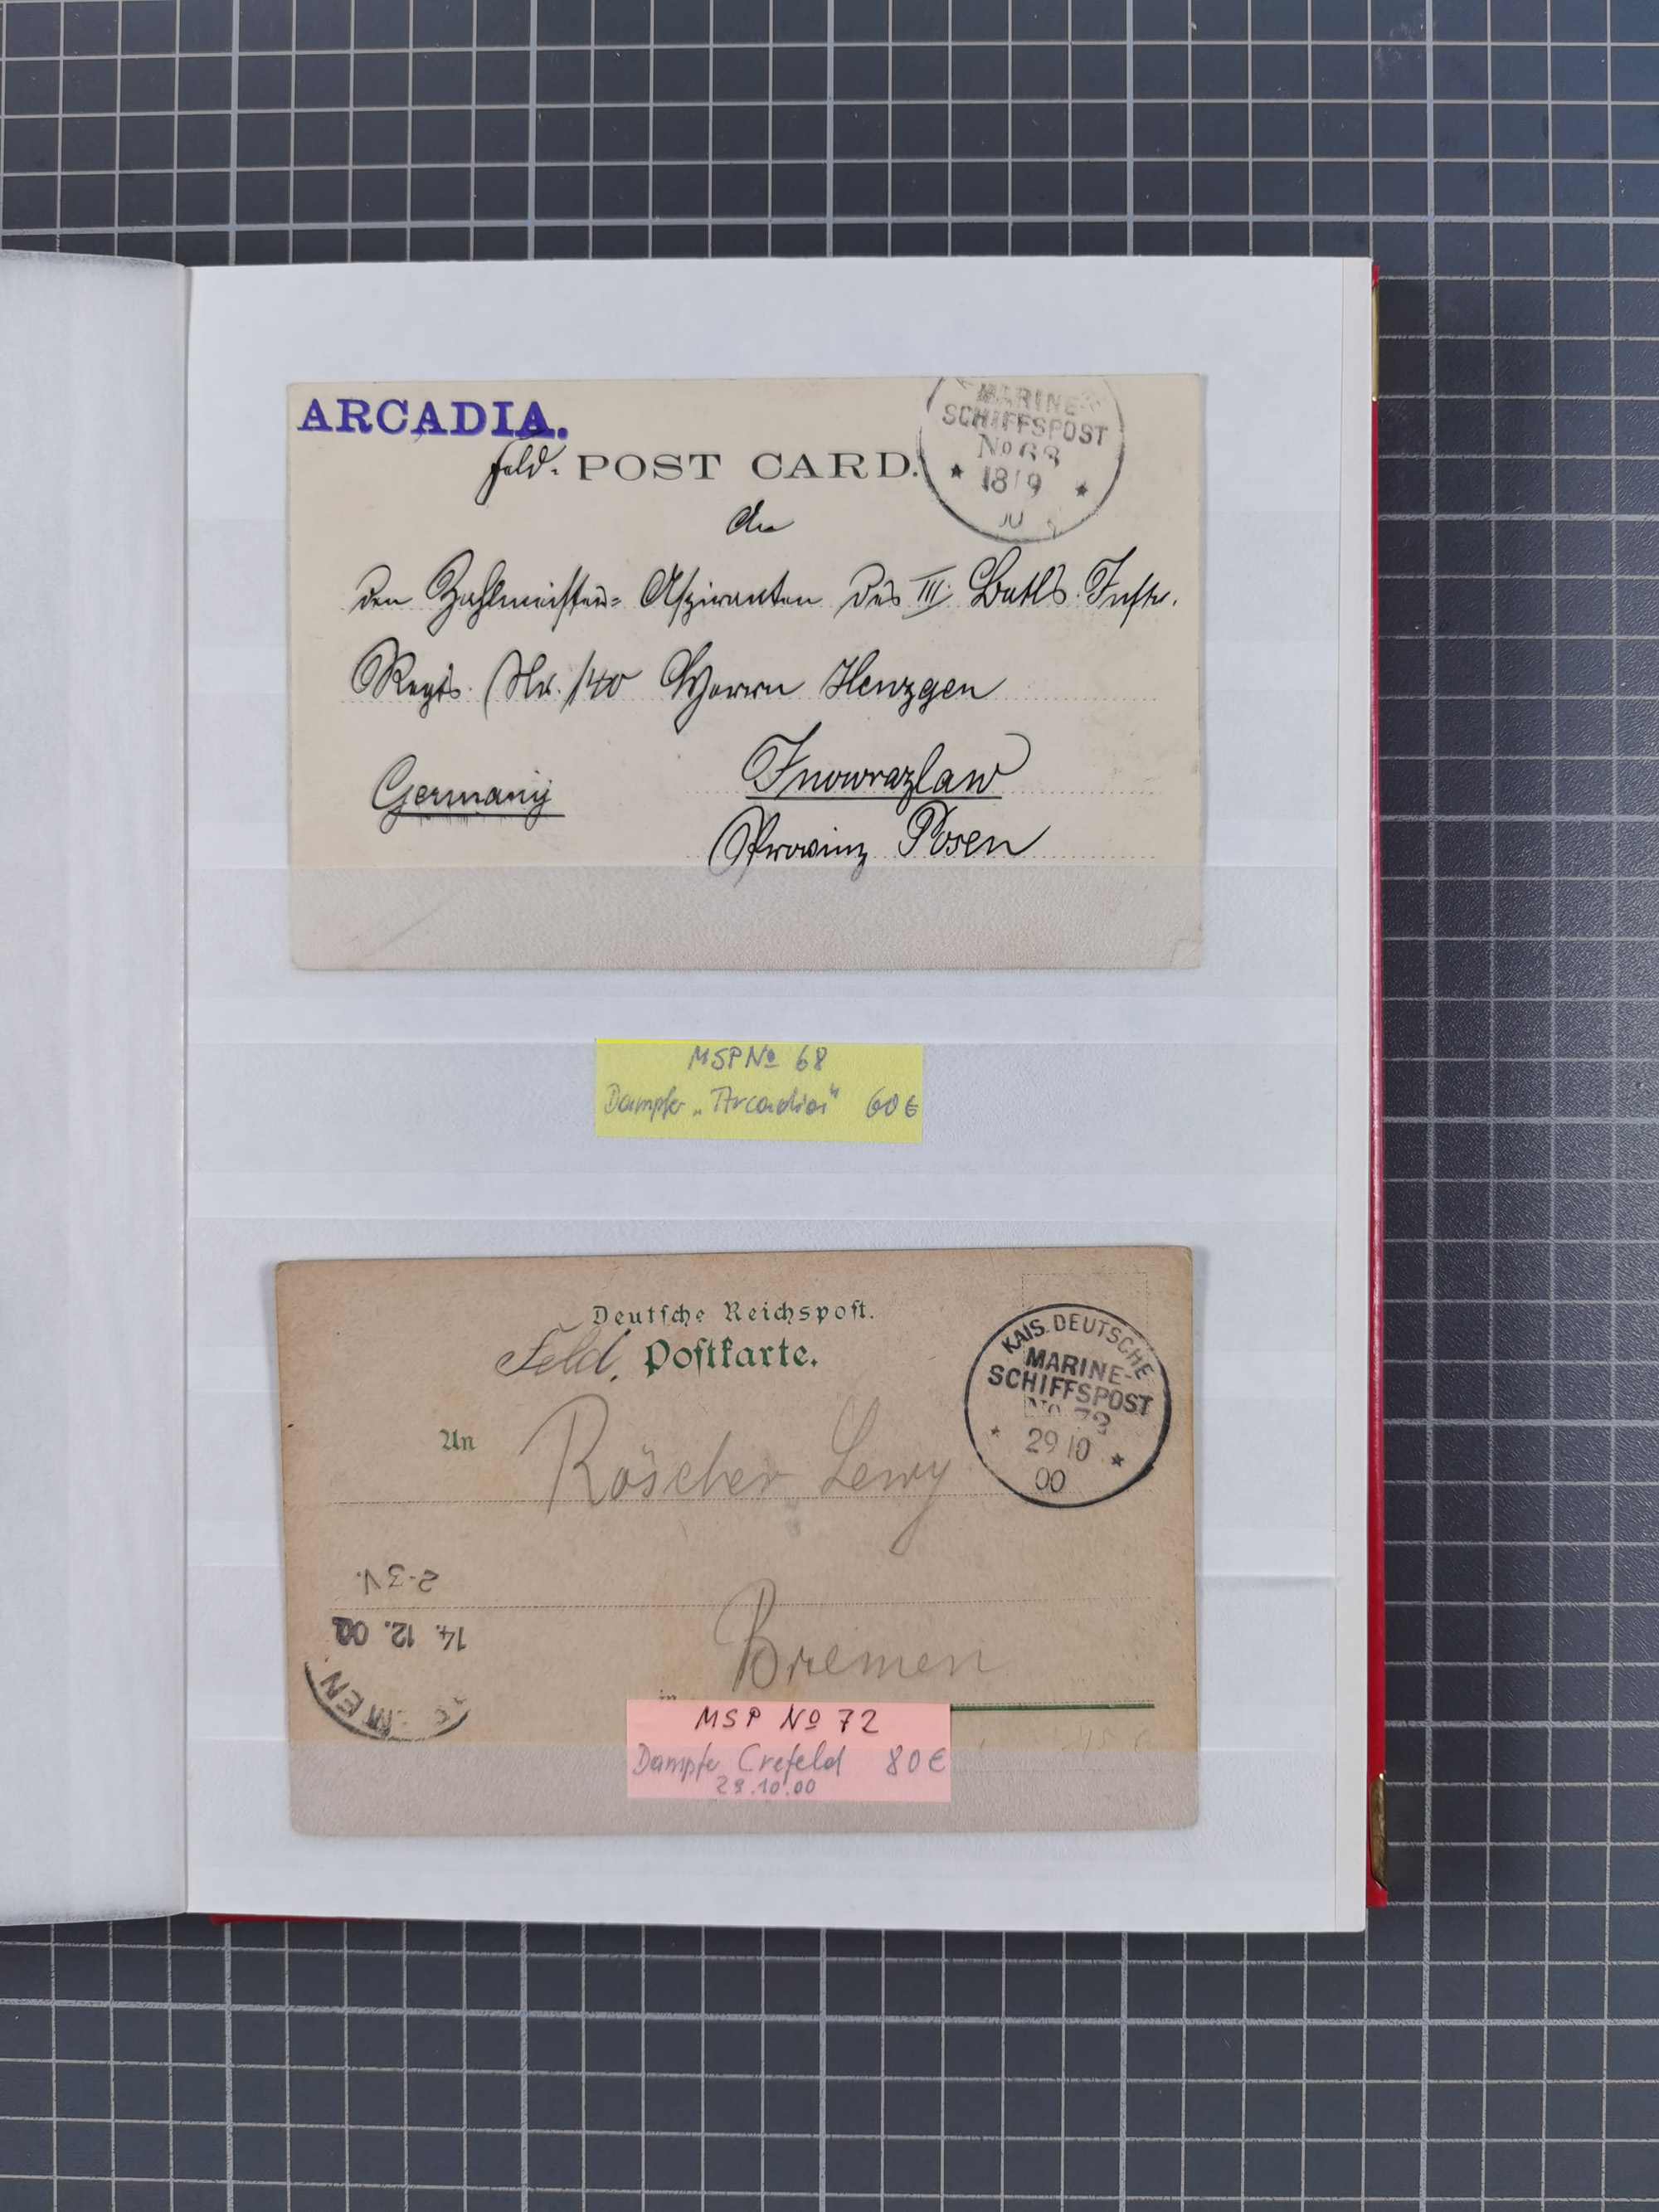 ARCADIA.
Feld- POST CARD.
MARINE-
SCHIFFSPOST
No 68
18/9
An
den Zahlmeister-Aspiranten des III. Batls. Inftr.
Regts. Nr. 140 Herrn Henzgen
Inowrazlaw
Germany
Provinz Posen
MSP No 68
Dampfer „Arcadia" 60 €
Deutsche Reichspost.
Feld. Postkarte.
KAIS. DEUTSCHE
MARINE-
SCHIFFSPOST
No 72
29/10
00
An Röscher Lewy
2-3V.
14. 12. 00
Bremen
in
MSP No 72
Dampfer Crefeld 80 €
29.10.00